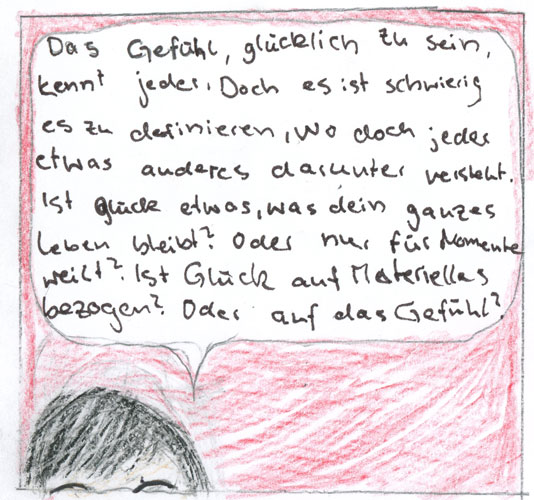 Das Gefühl, glücklich zu sein,
kennt jeder. Doch es ist schwierig
es zu definieren, wo doch jeder
etwas anderes darunter versteht.
Ist glück etwas, was dein ganzes
Leben bleibt? Oder nur für Momente
weilt? Ist Glück auf Materielles
bezogen? Oder auf das Gefühl?